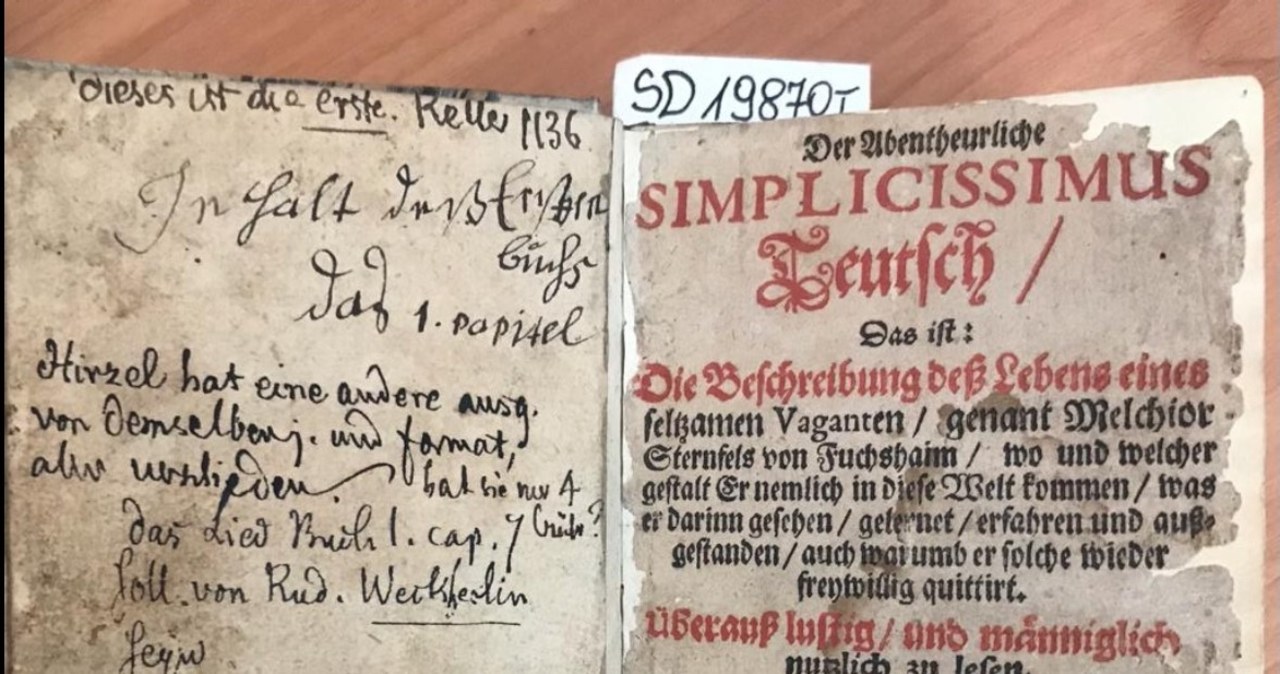 dieses ist die erste. Keller 1136
Inhalt deß Ersten
buchs
Das 1. capitel
Hirzel hat eine andere ausg.
von demselben j. und format,
aber verschieden. hat sie nur 4
Büch?
das Lied Buch 1. cap. 7
soll von Rud. Weckherlin
seyn
SD 19870T
Der Abentheurliche
SIMPLICISSIMUS
Teutſch /
Das iſt:
Die Beſchreibung deß Lebens eines
ſeltzamen Vaganten / genant Melchior
Sternfels von Fuchshaim / wo und welcher
geſtalt Er nemlich in dieſe Welt kommen / was
er darinn geſehen / gelernet / erfahren und auß-
geſtanden / auch warumb er ſolche wieder
freywillig quittirt.
Überauß luſtig / und männiglich
nutzlich zu leſen.